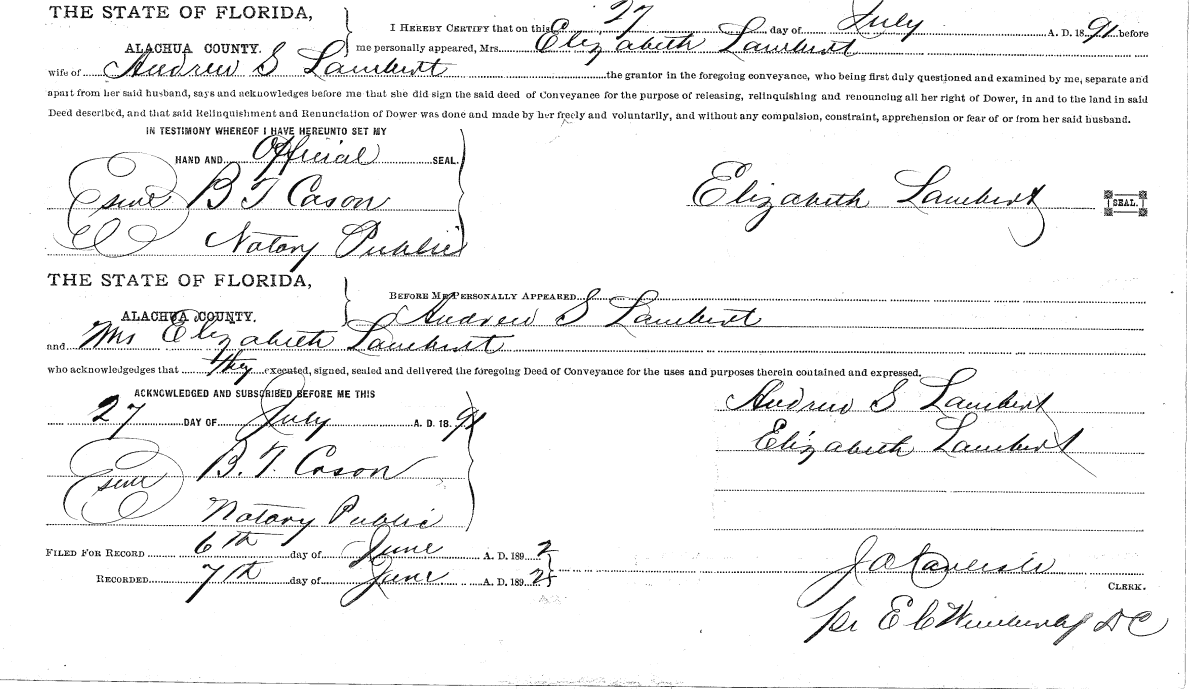 THE STATE OF FLORIDA,
I HEREBY CERTIFY that on this 27 day of July A. D. 18 91 before
ALACHUA COUNTY. me personally appeared, Mrs. Elizabeth Lambert
wife of Andrew S Lambert the grantor in the foregoing conveyance, who being first duly questioned and examined by me, separate and
apart from her said husband, says and acknowledges before me that she did sign the said deed of Conveyance for the purpose of releasing, relinquishing and renouncing all her right of Dower, in and to the land in said
Deed described, and that said Relinquishment and Renunciation of Dower was done and made by her freely and voluntarily, and without any compulsion, constraint, apprehension or fear of or from her said husband.
IN TESTIMONY WHEREOF I HAVE HEREUNTO SET MY
HAND AND Official SEAL.
B T Cason
Elizabeth Lambert SEAL.
Notary Public
THE STATE OF FLORIDA,
BEFORE ME PERSONALLY APPEARED
ALACHUA COUNTY. Andrew S Lambert
and Mrs Elizabeth Lambert
who acknowledgedges that they executed, signed, sealed and delivered the foregoing Deed of Conveyance for the uses and purposes therein contained and expressed.
ACKNOWLEDGED AND SUBSCRIBED BEFORE ME THIS
27 DAY OF July A. D. 18 91
Andrew S Lambert
Elizabeth Lambert
B. T. Cason
Notary Public
FILED FOR RECORD 6th day of June A. D. 189 2
RECORDED 7th day of June A. D. 189 2
CLERK.
per E C Wimberly DC